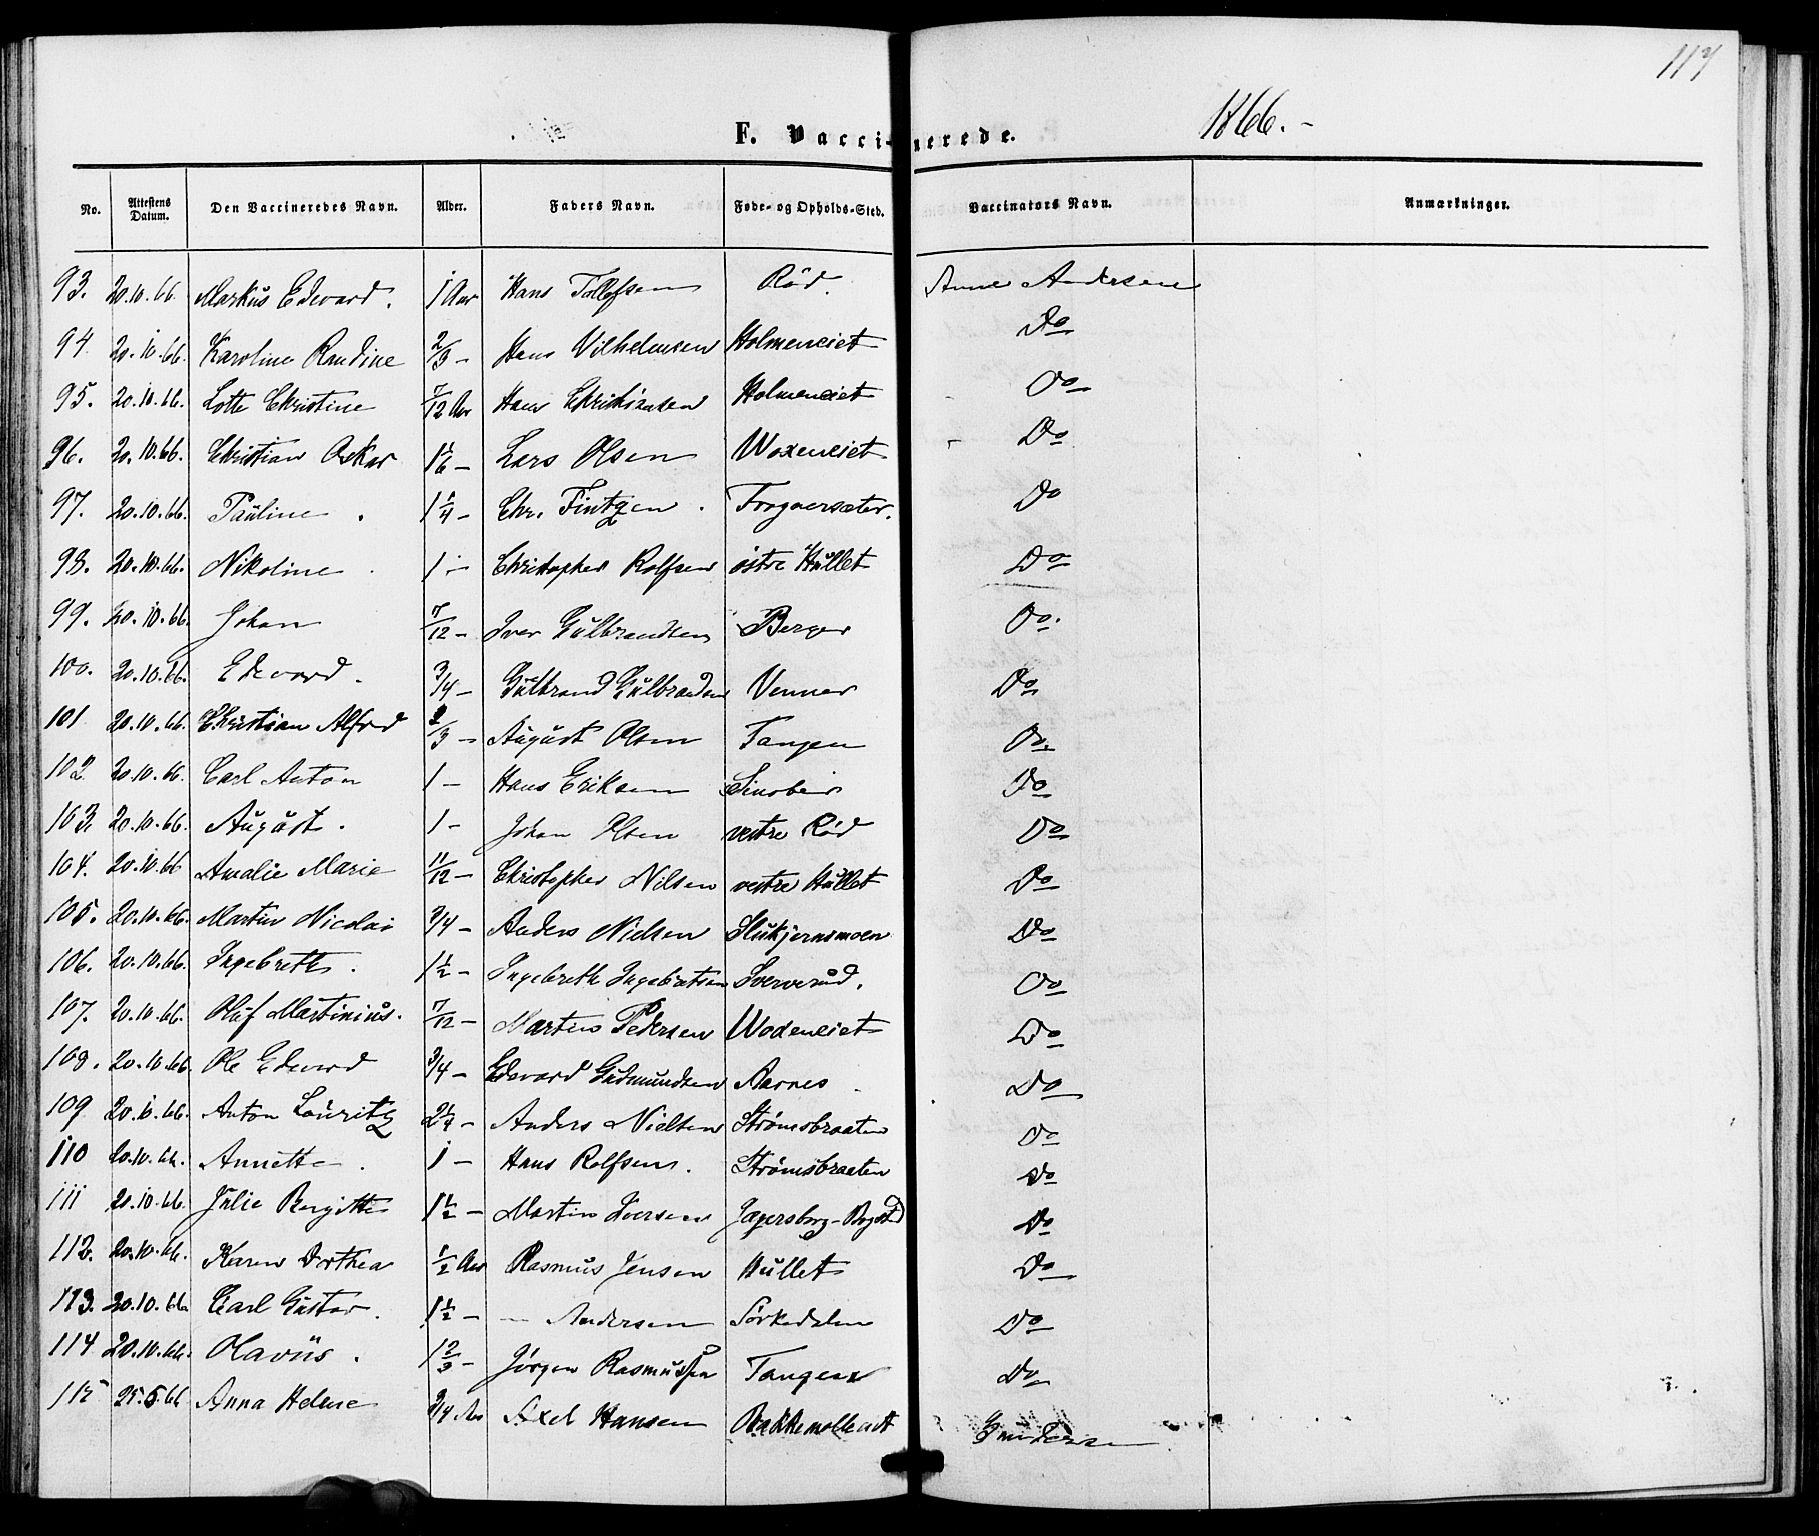 117
F. Vaccinerede. 1866.-
No. Attestens Datum. Den Vaccineredes Navn. Alder. Faders Navn. Føde- og Opholds-Sted. Vaccinators Navn. Anmærkninger.
93. 20.10.66. Markus Edevard. 1 Aar Hans Tollefsen Röd. Anne Andersen
94. 20.10.66. Karoline Randine 2/3 - Hans Vilhelmsen Holmeneiet Do
95. 20.10.66. Lotte Christine 7/12 Aar Hans Christiansen Holmeneiet Do
96. 20.10.66. Christian Oskar 1 1/6 - Lars Olsen Woxeneiet Do
97. 20.10.66. Pauline. 1 1/4 - Chr. Fintzen. Frognersæter. Do
98. 20.10.66. Nikoline. 1 - Christopher Rolfsen östre Hullet Do
99. 20.10.66. Johan 7/12 - Iver Gulbrandsen Berger Do.
100. 20.10.66. Edevard. 3/4 - Gulbrand Gulbrandsen Venner Do
101 20.10.66. Christian Alfred 2/3 - August Olsen Tangen Do.
102 20.10.66. Carl Anton 1 - Hans Eriksen Sinober Do
103. 20.10.66. August. 1 - Johan Olsen vestre Röd Do
104. 20.10.66 Amalie Marie 11/12 - Christopher Nilsen vestre Hullet Do
105. 20.10.66. Martin Nicolai 3/4 - Anders Nielsen Slukjernsmoen Do
106. 20.10.66. Ingebreth. 1 1/2 - Ingebreth Ingebretsen Sververud. Do
107. 20.10.66. Oluf Martinius. 7/12 - Martin Pedersen Woxeneiet Do
108. 20.10.66. Ole Edevard 3/4 - Edevard Gudmundsen Aarnes Do
109 20.10.66. Anton Lauritz 2 1/4 - Anders Nielsen Strømsbraaten Do
110 20.10.66. Annette. 1 - Hans Rolfsen. Strømsbraaten Do
111 20.10.66. Julie Bergitte 1 1/2 - Martin Iversen Jagersborg-Bogstad Do
112. 20.10.66. Karen Dorthea 1/2 Aar Rasmus Jensen Hullet Do
113. 20.10.66 Carl Gustav. 1 1/2 - - Andersen Sörkedalen Do
114 20.10.66. Olavus. 1 2/3 - Jörgen Rasmussen Tangen Do
115 25.5.66 Anna Helene 3/4 Aar Axel Hansen Bakkemølleeiet Gundersen